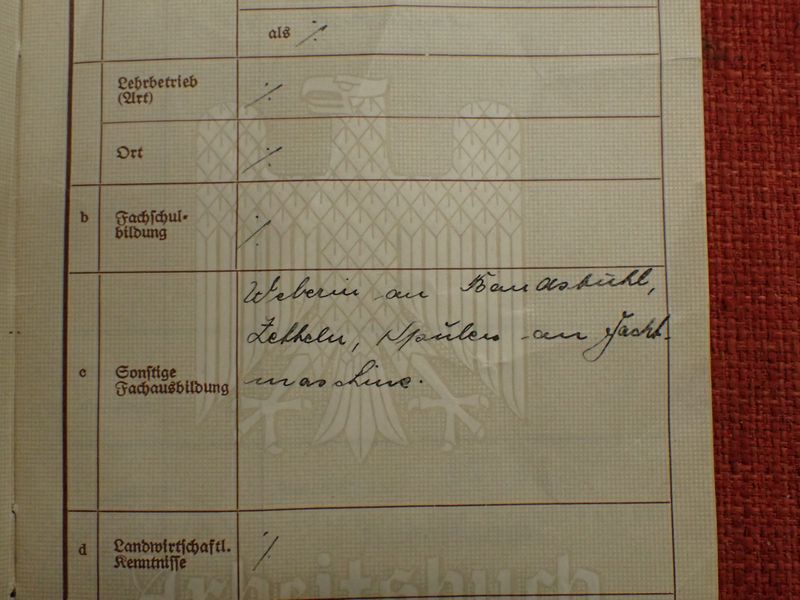 als ./.
Lehrbetrieb
(Art) ./.
Ort ./.
b Fachschul-
bildung ./.
Weberin an Bandstuhl,
Zetteln, Spulen an
c Sonstige
Fachausbildung
maschine.
d Landwirtschaftl.
Kenntnisse ./.
Arbeitsbuch